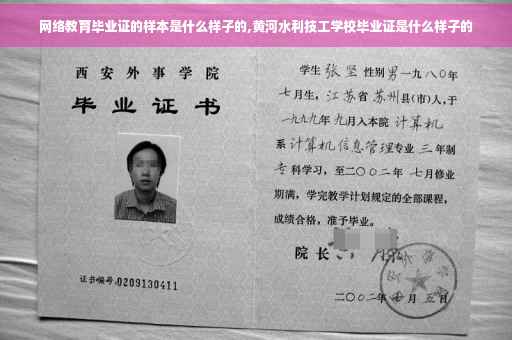 网络教育毕业证的样本是什么样子的,黄河水利技工学校毕业证是什么样子的
西安外事学院
毕业证书
证书编号:0209130411
学生 张坚 性别 男 一九八〇年
七月生, 江苏省 苏州 县(市)人,于
一九九九年 九月入本院 计算机
系 计算机信息管理 专业 三 年制
专 科学习, 至二〇〇二年 七月修业
期满, 学完教学计划规定的全部课程,
成绩合格, 准予毕业。
院长
二〇〇二年 月 五日